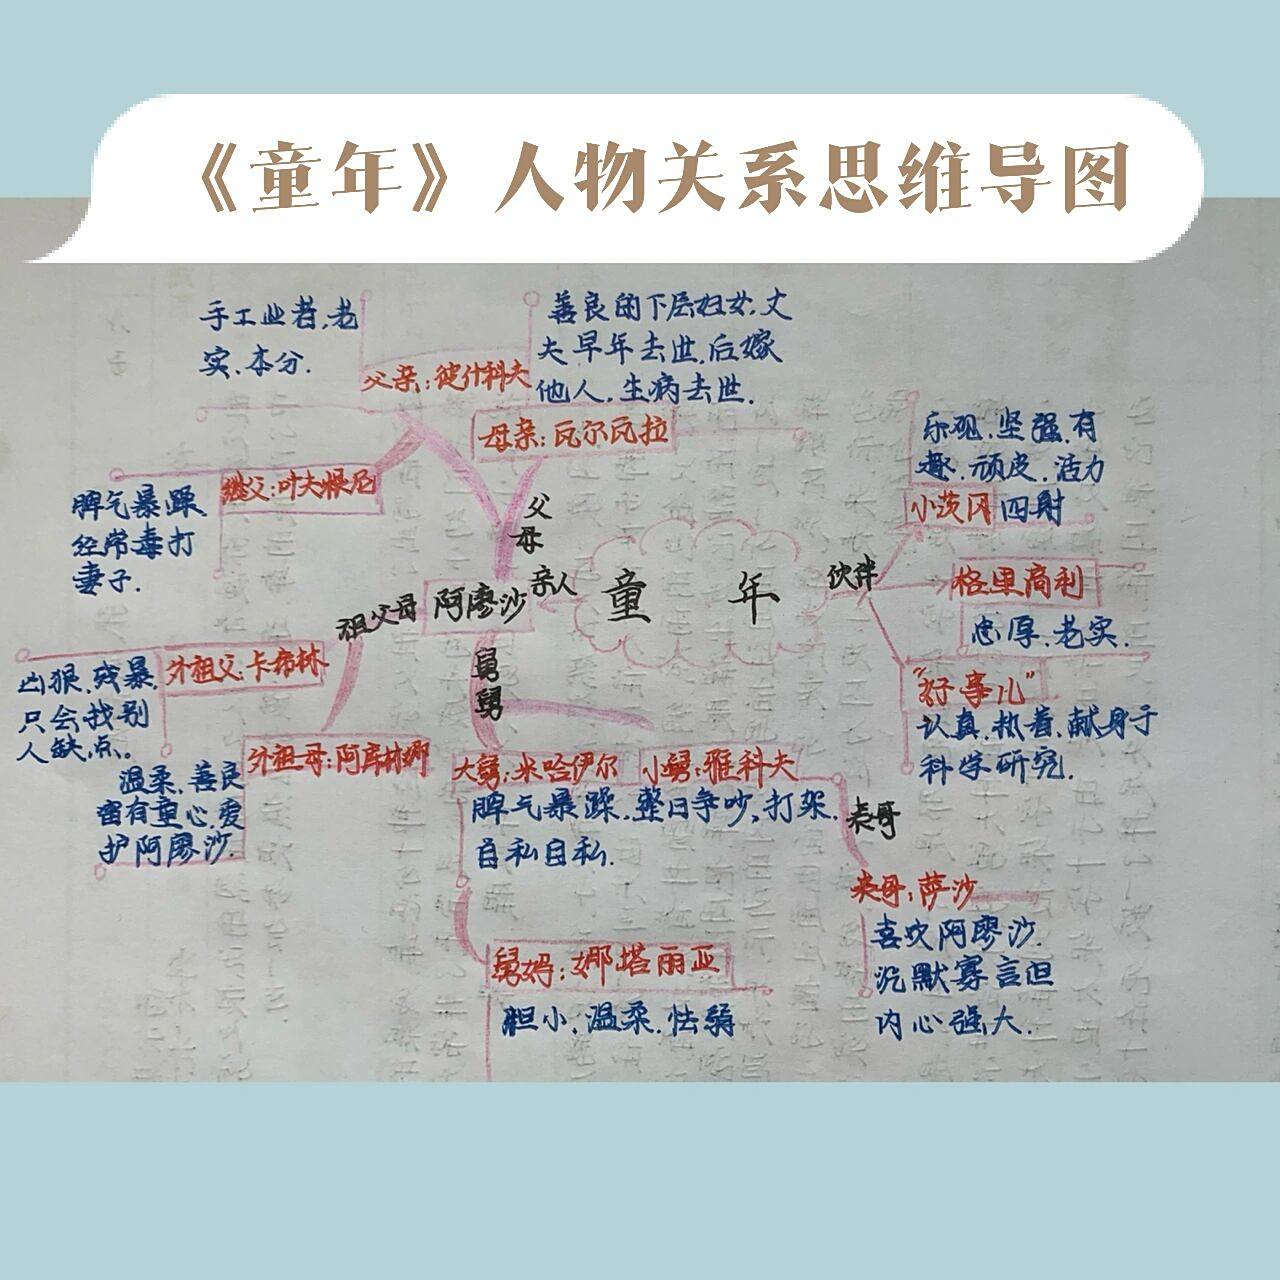 《童年》人物关系思维导图
手工业者.老
实.本分.
父亲:徒什科夫
善良的下层妇女.丈
夫早年去世.后嫁
他人.生病去世.
母亲:瓦尔瓦拉
继父:叶夫根尼
脾气暴躁
经常毒打
妻子.
父
母
亲人
阿廖沙
童 年
伙伴
乐观.坚强.有
趣.顽皮.活力
小茨冈 四射
格里高利
忠厚.老实.
"好事儿"
认真.执着.献身于
科学研究.
祖父母
外祖父:卡希林
凶狠.残暴.
只会找别
人缺点。
外祖母:阿库林娜
温柔.善良
富有童心.爱
护阿廖沙.
舅
舅
大舅:米哈伊尔
小舅:雅科夫
脾气暴躁.整日争吵,打架.
自私自利.
表哥
表哥:萨沙
喜欢阿廖沙.
沉默寡言但
内心强大.
舅妈:娜塔丽亚
胆小.温柔.怯弱